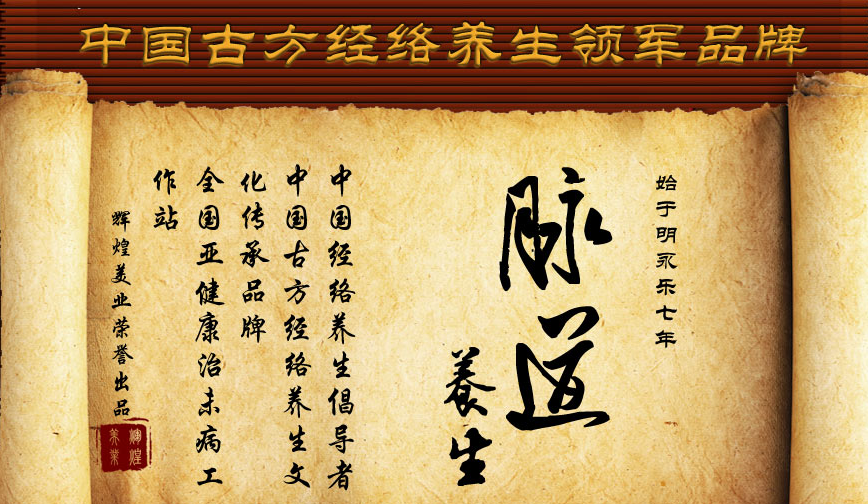 中国古方经络养生领军品牌
始于明永乐七年
脉道
養生
中国经络养生倡导者
中国古方经络养生文
化传承品牌
全国亚健康治未病工
作站
辉煌美业荣誉出品
輝煌
美業